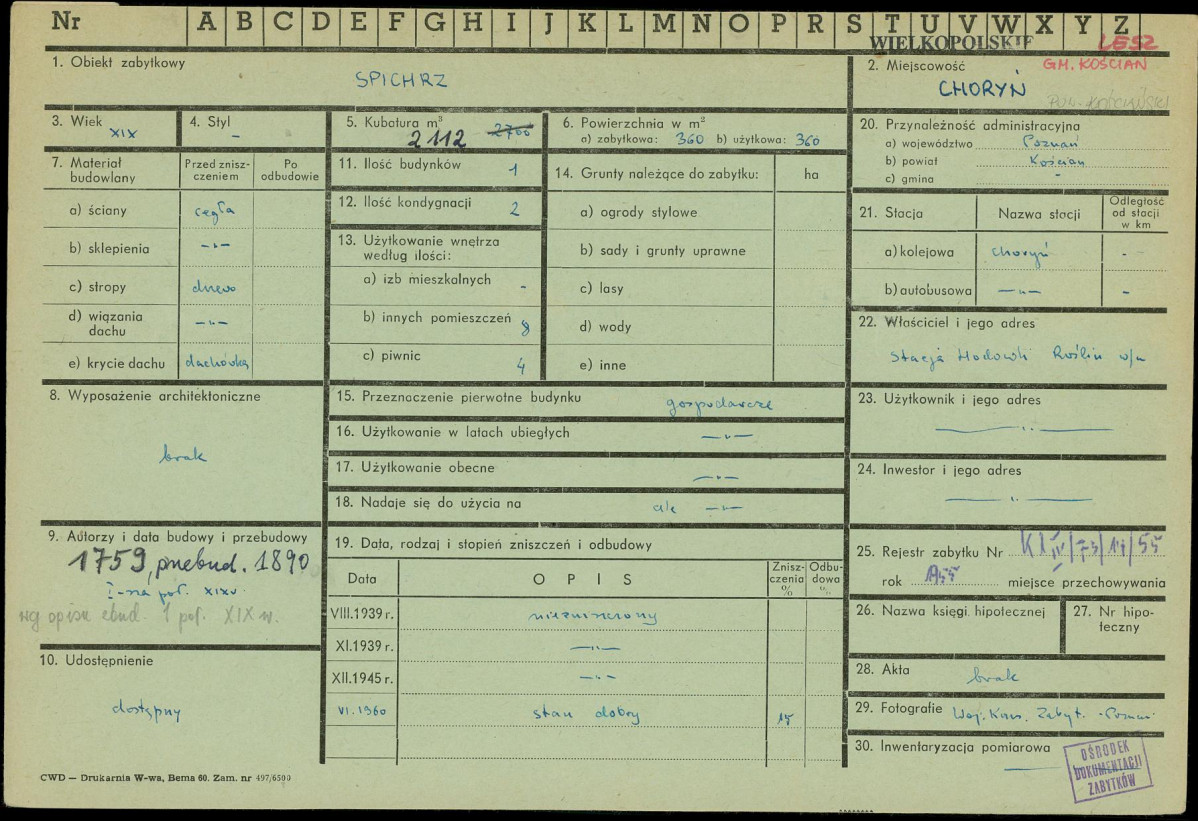 Nr A B C D E F G H I J K L M N O P R S T U V W X Y Z
WIELKOPOLSKIE LESZ
1. Obiekt zabytkowy
SPICHRZ
2. Miejscowość GM. KOŚCIAN
CHORYŃ
POW. KOŚCIAŃSKI
3. Wiek XIX
4. Styl -
5. Kubatura m³ 2112 2700
6. Powierzchnia w m²
a) zabytkowa: 360 b) użytkowa: 360
7. Materiał budowlany
Przed zniszczeniem
Po odbudowie
a) ściany cegła
b) sklepienia -"-
c) stropy drewo
d) wiązania dachu -"-
e) krycie dachu dachówka
8. Wyposażenie architektoniczne
brak
9. Autorzy i data budowy i przebudowy
1759, przebud. 1890
I-sza poł. XIXw.
wg opisu zbud. 1 poł. XIX w.
10. Udostępnienie
dostępny
11. Ilość budynków 1
12. Ilość kondygnacji 2
13. Użytkowanie wnętrza
według ilości:
a) izb mieszkalnych -
b) innych pomieszczeń 8
c) piwnic 4
14. Grunty należące do zabytku: ha
a) ogrody stylowe
b) sady i grunty uprawne
c) lasy
d) wody
e) inne
15. Przeznaczenie pierwotne budynku gospodarcze
16. Użytkowanie w latach ubiegłych -"-
17. Użytkowanie obecne -"-
18. Nadaje się do użycia na -"-
19. Data, rodzaj i stopień zniszczeń i odbudowy
Data OPIS Zniszczenia % Odbudowa %
VIII.1939 r. niezniszczony
XI.1939 r. -"-
XII.1945 r. -"-
VI.1960 stan dobry 15
20. Przynależność administracyjna
a) województwo Poznań
b) powiat Kościan
c) gmina -
21. Stacja
Nazwa stacji
Odległość od stacji w km
a) kolejowa Choryń -
b) autobusowa -"- -
22. Właściciel i jego adres
Stacja Hodowli Roślin w/m
23. Użytkownik i jego adres
-"-
24. Inwestor i jego adres
-"-
25. Rejestr zabytku Nr
rok miejsce przechowywania
26. Nazwa księgi hipotecznej
27. Nr hipoteczny
28. Akta brak
29. Fotografie Woj. Kons. Zabyt. - Poznań
30. Inwentaryzacja pomiarowa
OŚRODEK
DOKUMENTACJI
ZABYTKÓW
CWD — Drukarnia W-wa, Bema 60. Zam. nr 497/6500